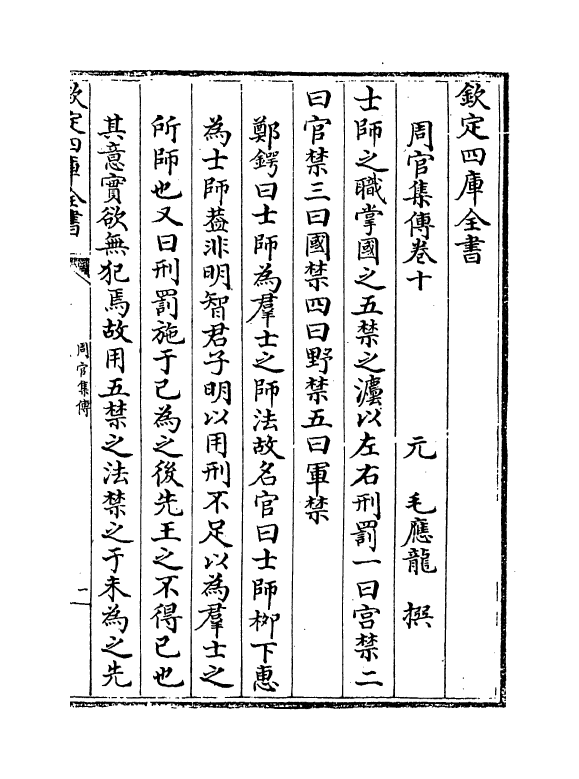 欽定四庫全書
周官集傳卷十
元 毛應龍 撰
士師之職掌國之五禁之灋以左右刑罰一曰宫禁二
曰官禁三曰國禁四曰野禁五曰軍禁
鄭鍔曰士師為羣士之師法故名官曰士師栁下惠
為士師葢非明智君子明以用刑不足以為羣士之
所師也又曰刑罰施于已為之後先王之不得已也
其意實欲無犯焉故用五禁之法禁之于未為之先
欽定四庫全書
周官集傳
一